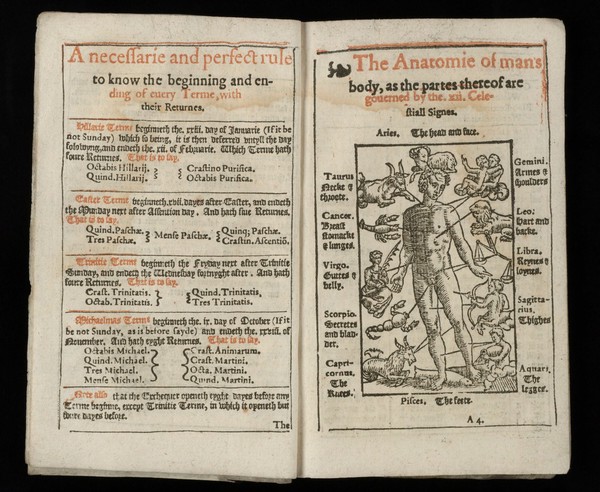 A necessarie and perfect rule
to know the beginning and en-
ding of euery Terme, with
their Returnes.
Hillarie Terme beginneth the. xxiii. day of Januarie (If it be
not Sunday) which so being, it is then deferred vntyll the day
folowyng, and endeth the. xii. of February. Which Terme hath
foure Returnes. That is to say.
Octabis Hillarij. Crastino Purifica.
Quind. Hillarij. Octabis Purifica.
Easter Terme beginneth. xvii. dayes after Easter, and endeth
the Munday next after Assention day. And hath fiue Returnes.
That is to say.
Quind. Paschæ. Mense Paschæ. Quinq; Paschæ.
Tres Paschæ. Crastin. Ascentiõ.
Trinitie Terme beginneth the Fryday next after Trinitie
Sunday, and endeth the Wednesday fortnyght after. And hath
foure Returnes. That is to say.
Crast. Trinitatis. Quind. Trinitatis.
Octab. Trinitatis. Tres Trinitatis.
Michaelmas Terme beginneth the. ix. day of October (If it
be not Sunday, as is before sayde) and endeth the. xxviii. of
Nouember. And hath eyght Returnes. That is to say.
Octabis Michael. Crast. Animarum.
Quind. Michael. Crast. Martini.
Tres Michael. Octa. Martini.
Mense Michael. Quind. Martini.
Note also that the Exchequer openeth eyght dayes before any
Terme beginne, except Trinitie Terme, in which it openeth but
foure dayes before.
The
The Anatomie of mans
body, as the partes thereof are
gouerned by the. xii. Cele-
stiall Signes.
Aries. The head and face.
Taurus
Necke &
throote.
Cancer.
Breast
stomacke
& lunges.
Virgo.
Guttes &
belly.
Scorpio.
Secretes
and blad-
der.
Capri-
cornus.
The
Knees.
Gemini.
Armes &
shoulders
Leo:
Hart and
backe.
Libra.
Reynes &
loynes.
Sagitta-
rius.
Thighes
Aquari.
The
legges.
Pisces. The feete.
A 4.